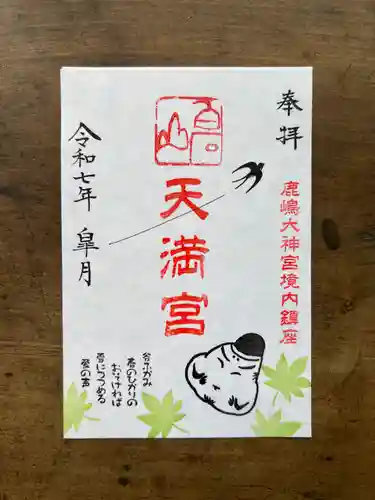 奉拝
鹿嶋大神宮境内鎮座
天満宮
谷ふかみ
春のひかりの
おそければ
雪につつめる
鶯の声
令和七年 皐月